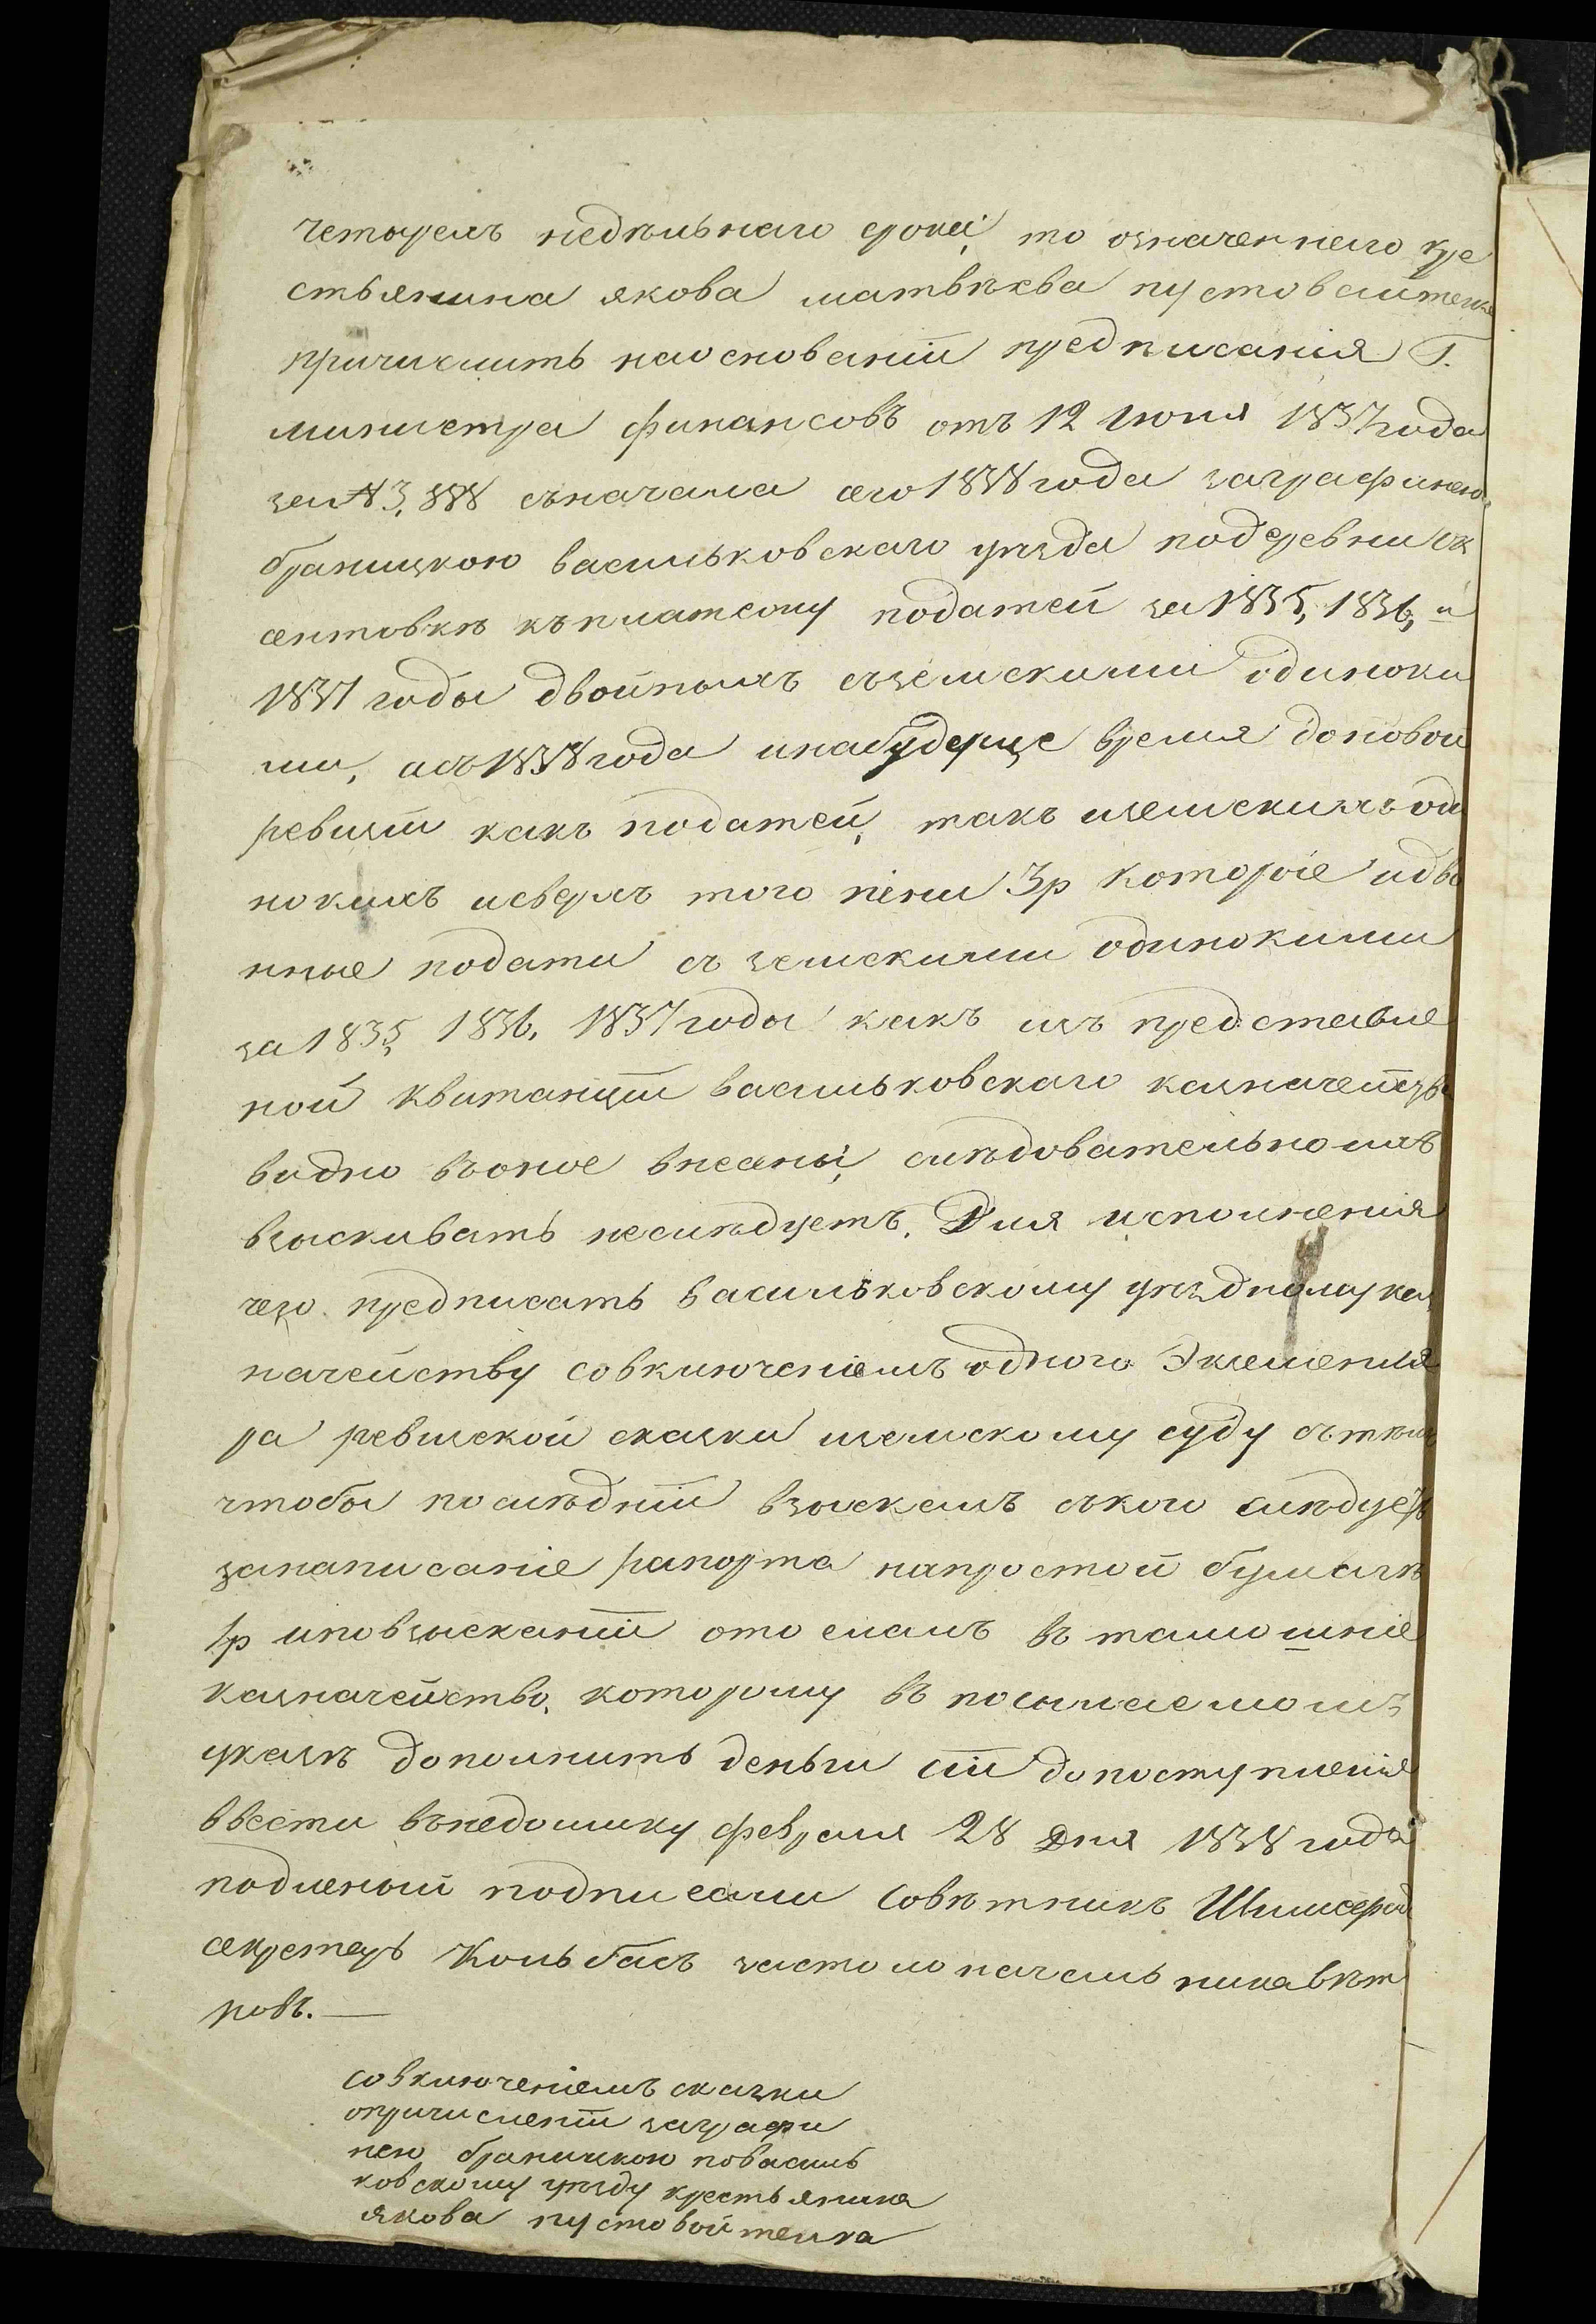 четорехъ неделънаго срока, то означеннаго кре
стьянина якова матвѣева пустовойтенка
причислить наосновании предписания Г.
министра финансовъ отъ 12 июня 1837 года
за № 3,888 съначала сего 1838 года заграфинею
браницкою васильковскаго уѣзда подеревни
сентовкѣ къплатежу податей за 1835, 1836, и
1837 годы двойныхъ съземскими одиноки
ми, асъ 1838 года инабудуще время доновои
ревизіи какъ податей, такъ иземскихъ оди
нокихъ исверхъ того пени 3р которіе идво
нные подати съ земскими одинокими
за 1835, 1836, 1837 годы какъ изъ представле
ной квитанціи васильковскаго казначейства
видно въоное внесены, слѣдовательно ихъ
взыскивать неслѣдуетъ. Для исполненія
чего предписать васильковскому уѣздному каз
начейству совключеніемъ одного Экземпля
ра ревизской сказки иземскому суду стѣмъ
чтобы послѣдній взыскалъ ского слѣдуетъ
занаписаніе рапорта напростой бумагѣ
1р иповзысканіи отослалъ въ тамошніе
казначейство, которому въ посылаемомъ
указѣ дополнить деньги сіи допоступленія
ввести внедоимку февраля 28 дня 1838 года
подленый подписали Совѣтникъ
секретарь Кольбасъ застолоначальника вѣт
ровъ. —
совключеніемъ сказки
опричисленіи заграфи
нею браницкою повасиль
ковскому уѣзду крестьянина
якова пустовойтенка